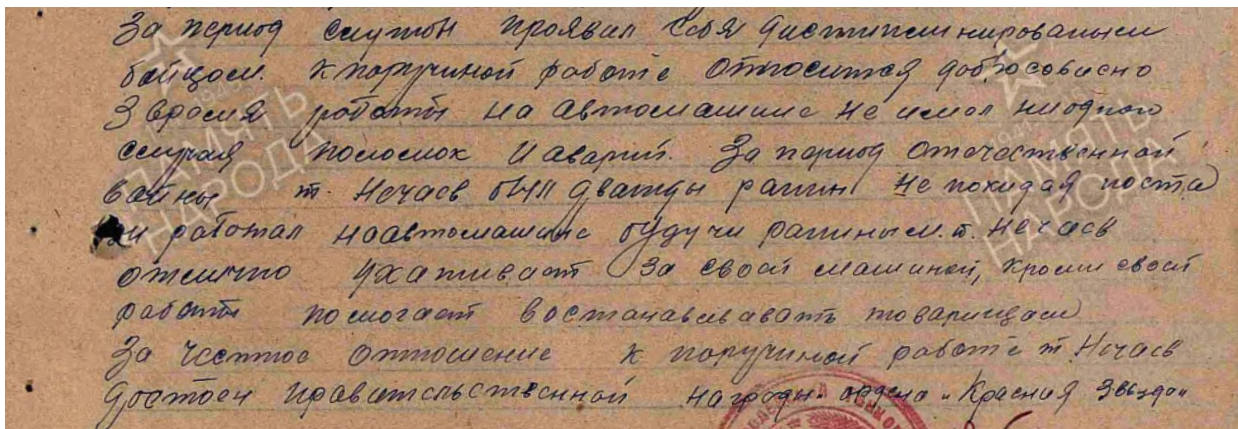 За период службы проявил себя дисциплинированным
бойцом. К поручиной работе относится добросовисно
З время работы на автомашине не имел ниодного
случая поломок и аварий. За период отечественной
вайны т. Нечаев был дважды ранин не покидая поста
он работал наавтомашине будучи раниным. т. Нечаев
отлично ухаживает за своей машиной, кроми своей
работы помогает востанавливавать товарищам
За честное отношение к поручиной работе т. Нечаев
достоен правительственной награды ордена „Красная Звезда"
ПАМЯТЬ
НАРОДА
ПАМЯТЬ
НАРОДА